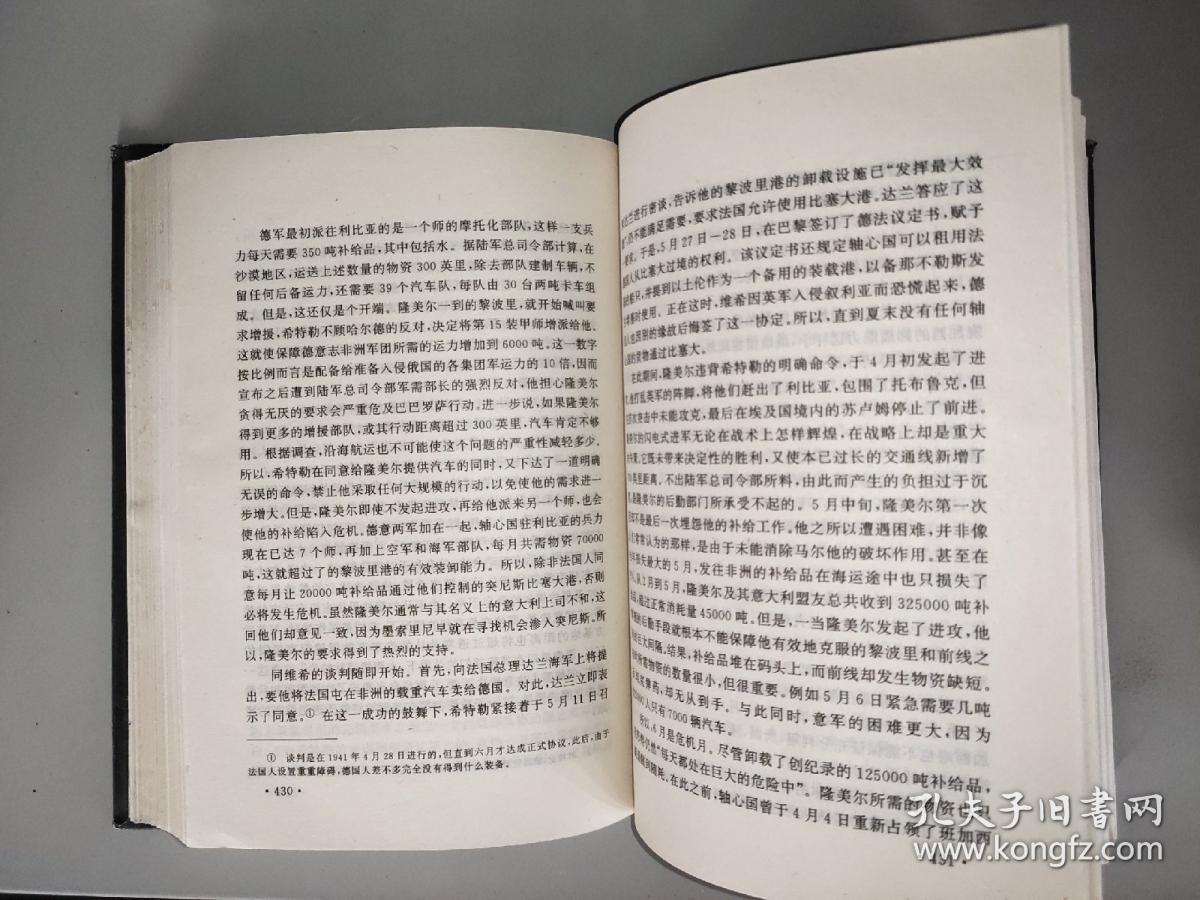 德军最初派往利比亚的是一个师的摩托化部队,这样一支兵
力每天需要350吨补给品,其中包括水。据陆军总司令部计算,在
沙漠地区,运送上述数量的物资300英里,除去部队建制车辆,不
留任何后备运力,还需要39个汽车队,每队由30台两吨卡车组
成。但是,这还仅是个开端。隆美尔一到的黎波里,就开始喊叫要
求增援,希特勒不顾哈尔德的反对,决定将第15装甲师增派给他。
这就使保障德意志非洲军团所需的运力增加到6000吨。这一数字
按比例而言是配备给准备入侵俄国的各集团军运力的10倍,因而
宣布之后遭到陆军总司令部军需部长的强烈反对,他担心隆美尔
贪得无厌的要求会严重危及巴巴罗萨行动。进一步说,如果隆美尔
得到更多的增援部队,或其行动距离超过300英里,汽车肯定不够
用。根据调查,沿海航运也不可能使这个问题的严重性减轻多少。
所以,希特勒在同意给隆美尔提供汽车的同时,又下达了一道明确
无误的命令,禁止他采取任何大规模的行动,以免使他的需求进一
步增大。但是,隆美尔即使不发起进攻,再给他派来另一个师,也会
使他的补给陷入危机。德意两军加在一起,轴心国驻利比亚的兵力
现在已达7个师,再加上空军和海军部队,每月共需物资70000
吨,这就超过了的黎波里港的有效装卸能力。所以,除非法国人同
意每月让20000吨补给品通过他们控制的突尼斯比塞大港,否则
必将发生危机。虽然隆美尔通常与其名义上的意大利上司不和,这
回他们却意见一致,因为墨索里尼早就在寻找机会渗入突尼斯。所
以,隆美尔的要求得到了热烈的支持。
同维希的谈判随即开始。首先,向法国总理达兰海军上将提
出,要他将法国屯在非洲的载重汽车卖给德国。对此,达兰立即表
示了同意。①在这一成功的鼓舞下,希特勒紧接着于5月11日召
① 谈判是在1941年4月28日进行的,但直到六月才达成正式协议,此后,由于
法国人设置重重障碍,德国人差不多完全没有得到什么装备。
·430·
达兰进行密谈,告诉他的黎波里港的卸载设施已“发挥最大效
仍不能满足需要,要求法国允许使用比塞大港。达兰答应了这
要求。于是,5月27日—28日,在巴黎签订了德法议定书,赋予
国人从比塞大过境的权利。该议定书还规定轴心国可以租用法
的船只,并提到以土伦作为一个备用的装载港,以备那不勒斯发
堵塞时使用。正在这时,维希因英军入侵叙利亚而恐慌起来,德
人也因别的缘故后悔签了这一协定。所以,直到夏末没有任何轴
国的货物通过比塞大。
在此期间,隆美尔违背希特勒的明确命令,于4月初发起了进
他打乱英军的阵脚,将他们赶出了利比亚,包围了托布鲁克,但
次突击中未能攻克,最后在埃及国境内的苏卢姆停止了前进。
美尔的闪电式进军无论在战术上怎样辉煌,在战略上却是重大
它既未带来决定性的胜利,又使本已过长的交通线新增了
英里距离。不出陆军总司令部所料,由此而产生的负担过于沉
是隆美尔的后勤部门所承受不起的。5月中旬,隆美尔第一次
却不是最后一次埋怨他的补给工作。他之所以遭遇困难,并非像
们常认为的那样,是由于未能消除马尔他的破坏作用。甚至在
损失最大的5月,发往非洲的补给品在海运途中也只损失了
从2月到5月,隆美尔及其意大利盟友总共收到325000吨补
品,超过正常消耗量45000吨。但是,一当隆美尔发起了进攻,他
的后勤手段就根本不能保障他有效地克服的黎波里和前线之
巨大间隔。结果,补给品堆在码头上,而前线却发生物资缺短。
所需物资的数量很小,但很重要。例如5月6日紧急需要几吨
药,却无从到手。与此同时,意军的困难更大,因为
人只有7000辆汽车。
所以,6月是危机月。尽管卸载了创纪录的125000吨补给品,
仍然“每天都处在巨大的危险中”。隆美尔所需的物资也和
随到随耗。在此之前,轴心国曾于4月4日重新占领了班加西
431·
孔夫子旧书网
www.kongfz.com